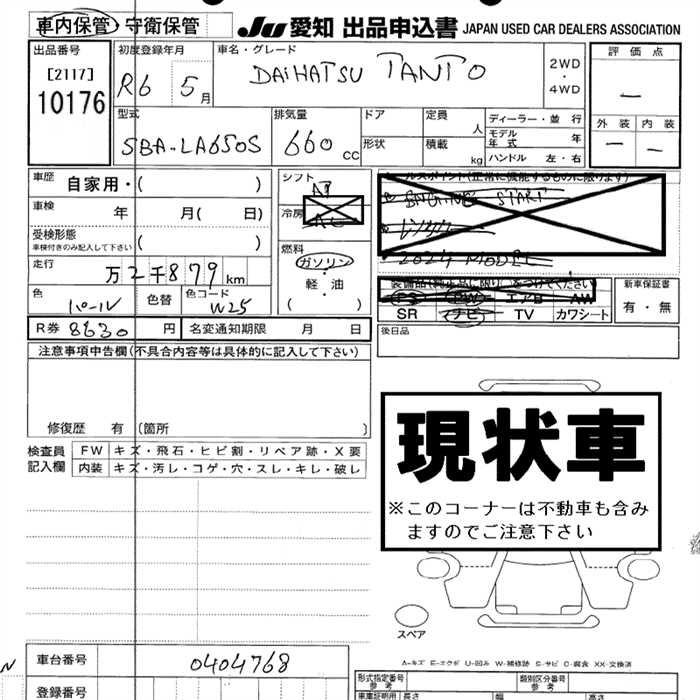 車内保管・守衛保管
JU 愛知 出品申込書 JAPAN USED CAR DEALERS ASSOCIATION
出品番号
[2117]
10176
初度登録年月
R6 5月
車名・グレード
DAIHATSU TANTO
2WD
・
4WD
評価点
—
外装 内装
— —
型式
SBA-LA650S
排気量
660 cc
ドア
形状
定員 人
積載 kg
ディーラー・並行
モデル年式 年
ハンドル 左・右
車歴 自家用・( )
車検 年 月( 日)
受検形態
車検付きのみ記入して下さい ( )
走行 万2千879km
色 パール 色替 色コード W25
シフト AT
冷房 AC
燃料
ガソリン
・
軽油
( )
セールスポイント(正常に機能するものに限ります)
ENGINE START
2024 MODEL
装備品(純正品に限り○をつけてください)
PS PW エアB AW
SR ナビ TV カワシート
新車保証書
有・無
後日品
R券 8630 円 名変通知期限 月 日
注意事項申告欄(不具合内容等は具体的に記入して下さい)
修復歴 有 〔箇所 〕
検査員記入欄
FW キズ・飛石・ヒビ割・リペア跡・X要
内装 キズ・汚レ・コゲ・穴・スレ・キレ・破レ
現状車
※このコーナーは不動車も含み
ますのでご注意下さい
スペア
A-キズ E-エクボ U-凹み W-補修跡 S-サビ C-腐食 XX-交換済
車台番号 0404768
登録番号
N
形式指定番号
参考
類別区分番号
参考
車庫証明用 長さ 幅 高さ